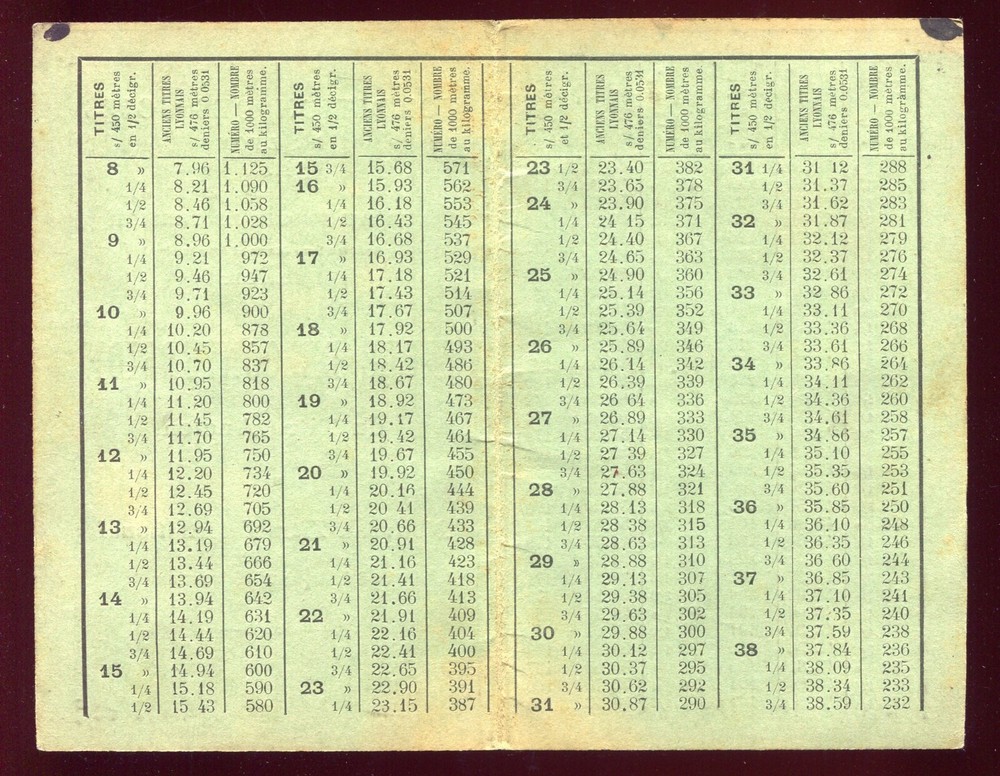 TITRES
s/ 450 mètres
en 1/2 décigr.
ANCIENS TITRES
LYONNAIS
s/ 476 mètres
deniers 0.0531
NUMÉRO — NOMBRE
de 1000 mètres
au kilogramme.
8 » 7.96 1.125
1/4 8.21 1.090
1/2 8.46 1.058
3/4 8.71 1.028
9 » 8.96 1.000
1/4 9.21 972
1/2 9.46 947
3/4 9.71 923
10 » 9.96 900
1/4 10.20 878
1/2 10.45 857
3/4 10.70 837
11 » 10.95 818
1/4 11.20 800
1/2 11.45 782
3/4 11.70 765
12 » 11.95 750
1/4 12.20 734
1/2 12.45 720
3/4 12.69 705
13 » 12.94 692
1/4 13.19 679
1/2 13.44 666
3/4 13.69 654
14 » 13.94 642
1/4 14.19 631
1/2 14.44 620
3/4 14.69 610
15 » 14.94 600
1/4 15.18 590
1/2 15 43 580
TITRES
s/ 450 mètres
en 1/2 décigr.
ANCIENS TITRES
LYONNAIS
s/ 476 mètres
deniers 0.0531
NUMÉRO — NOMBRE
de 1000 mètres
au kilogramme.
15 3/4 15.68 571
16 » 15.93 562
1/4 16.18 553
1/2 16.43 545
3/4 16.68 537
17 » 16.93 529
1/4 17.18 521
1/2 17.43 514
3/4 17.67 507
18 » 17.92 500
1/4 18.17 493
1/2 18.42 486
3/4 18.67 480
19 » 18.92 473
1/4 19.17 467
1/2 19.42 461
3/4 19.67 455
20 » 19.92 450
1/4 20.16 444
1/2 20 41 439
3/4 20.66 433
21 » 20.91 428
1/4 21.16 423
1/2 21.41 418
3/4 21.66 413
22 » 21.91 409
1/4 22.16 404
1/2 22.41 400
3/4 22.65 395
23 » 22.90 391
1/4 23.15 387
TITRES
s/ 450 mètres
et 1/2 décigr.
ANCIENS TITRES
LYONNAIS
s/ 476 mètres
deniers 0.0531
NUMÉRO — NOMBRE
de 1000 mètres
au kilogramme.
23 1/2 23.40 382
3/4 23.65 378
24 » 23.90 375
1/4 24 15 371
1/2 24.40 367
3/4 24.65 363
25 » 24.90 360
1/4 25.14 356
1/2 25.39 352
3/4 25.64 349
26 » 25.89 346
1/4 26.14 342
1/2 26.39 339
3/4 26 64 336
27 » 26.89 333
1/4 27.14 330
1/2 27 39 327
3/4 27.63 324
28 » 27.88 321
1/4 28.13 318
1/2 28 38 315
3/4 28.63 313
29 » 28.88 310
1/4 29.13 307
1/2 29.38 305
3/4 29.63 302
30 » 29.88 300
1/4 30.12 297
1/2 30.37 295
3/4 30.62 292
31 » 30.87 290
TITRES
s/ 450 mètres
en 1/2 décigr.
ANCIENS TITRES
LYONNAIS
s/ 476 mètres
deniers 0.0531
NUMÉRO — NOMBRE
de 1000 mètres
au kilogramme.
31 1/4 31 12 288
1/2 31.37 285
3/4 31.62 283
32 » 31.87 281
1/4 32.12 279
1/2 32.37 276
3/4 32.61 274
33 » 32 86 272
1/4 33.11 270
1/2 33.36 268
3/4 33.61 266
34 » 33.86 264
1/4 34.11 262
1/2 34.36 260
3/4 34.61 258
35 » 34.86 257
1/4 35.10 255
1/2 35.35 253
3/4 35.60 251
36 » 35.85 250
1/4 36.10 248
1/2 36.35 246
3/4 36 60 244
37 » 36.85 243
1/4 37.10 241
1/2 37.35 240
3/4 37.59 238
38 » 37.84 236
1/4 38.09 235
1/2 38.34 233
3/4 38.59 232